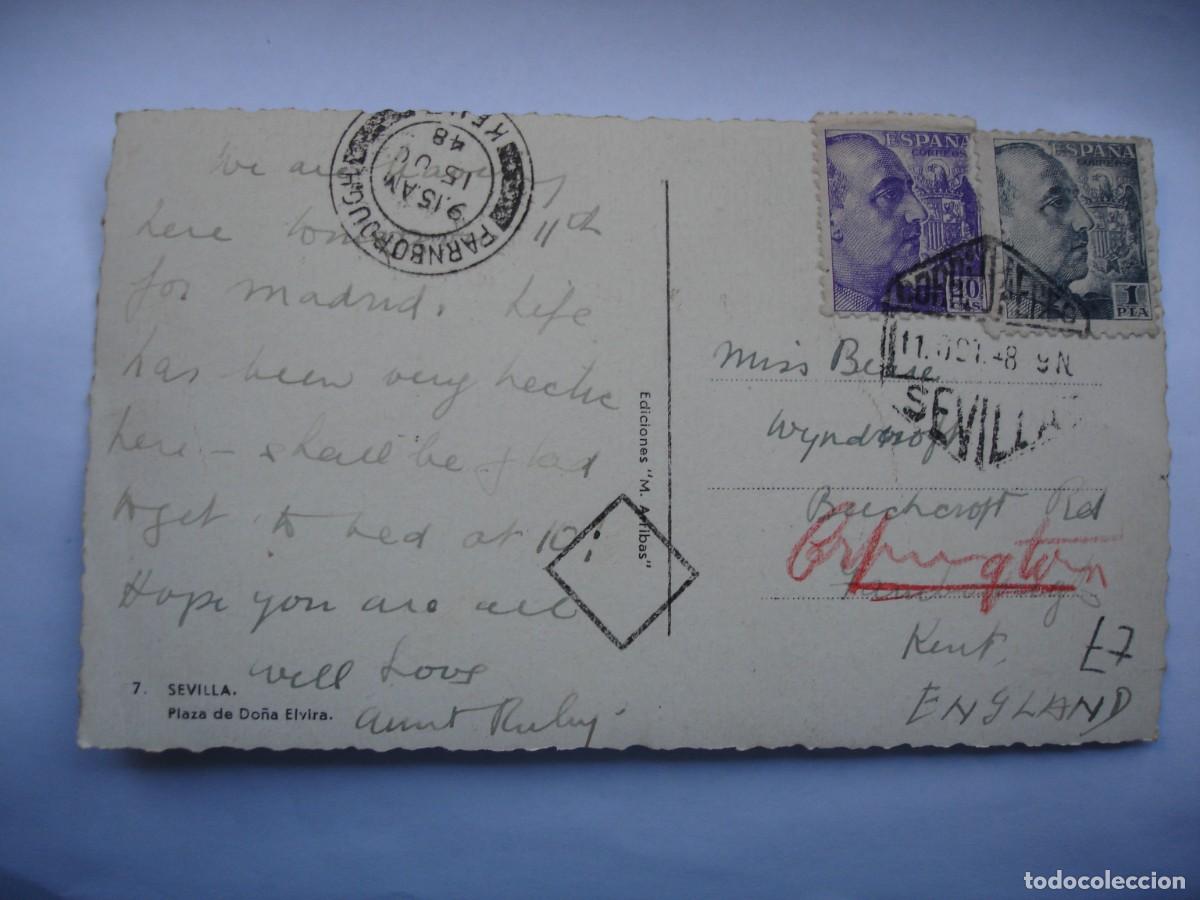 We are
here 11th
for Madrid. Life
has been very hectic
here - shall be glad
to get to bed at 10!
Hope you are all
well Love
Aunt Ruby.
7. SEVILLA.
Plaza de Doña Elvira.
Ediciones "M. Arribas"
FARNBOROUGH KENT
9.15 AM
15 OC
48
ESPAÑA
CORREOS
40
CTS
ESPAÑA
CORREOS
1
PTA
CORREO AEREO
11. OCT. 48 9N
SEVILLA
Miss
Wyndcroft
Beechcroft Rd
Orpington
Kent.
ENGLAND
£7
todocoleccion